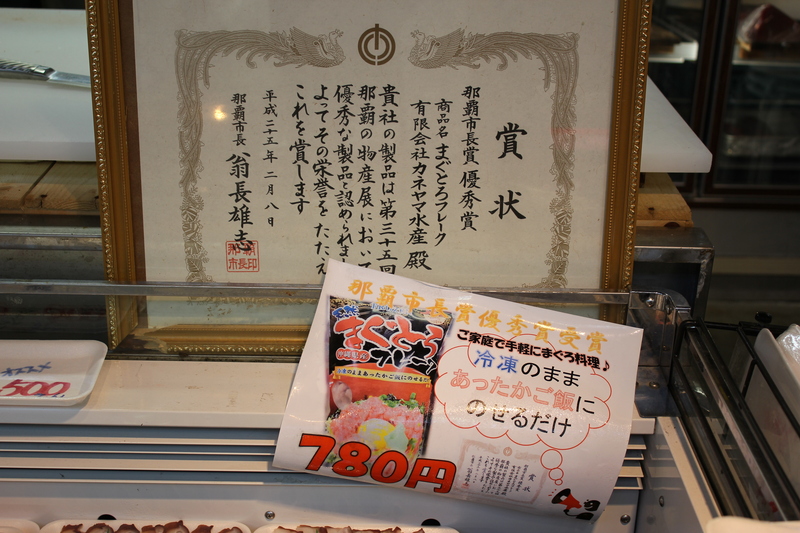 賞状
那覇市長賞 優秀賞
商品名 まぐとろフレーク
有限会社カネヤマ水産 殿
貴社の製品は第三十五回
那覇の物産展において
優秀な製品と認められま
よってその栄誉をたたえ
これを賞します
平成二十五年 二月八日
那覇市長 翁長雄志
那覇
市長印
那覇市長賞優秀賞受賞
ご家庭で手軽にまぐろ料理♪
冷凍のまま
あったかご飯に
のせるだけ
まぐとろ
フレーク
沖縄県産
冷凍のままあったかご飯にのせるだけ
780円
賞状
500